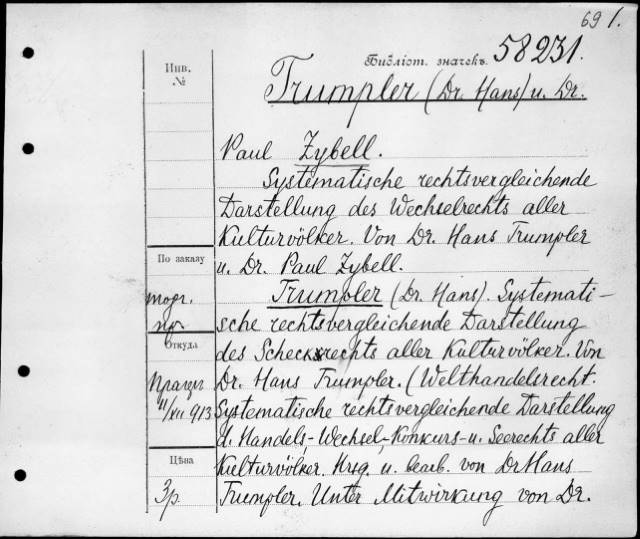 69 1.
Библіот. значекъ. 58231.
Инв.
№
Trumpler (Dr. Hans) u. Dr.
Paul Zybell.
Systematische rechtsvergleichende
Darstellung des Wechselrechts aller
Kulturvölker. Von Dr. Hans Trumpler
u. Dr. Paul Zybell.
По заказу
торг.
пр.
Trumpler (Dr. Hans). Systemati-
sche rechtsvergleichende Darstellung
des Scheckrechts aller Kulturvölker. Von
Dr. Hans Trumpler. (Welthandelsrecht.
Systematische rechtsvergleichende Darstellung
d. Handels-, Wechsel-, Konkurs- u. Seerechts aller
Kulturvölker. Hrsg. u. bearb. von Dr Hans
Trumpler. Unter Mitwirkung von Dr.
Откуда
11/XII 913
Цѣна
3р.